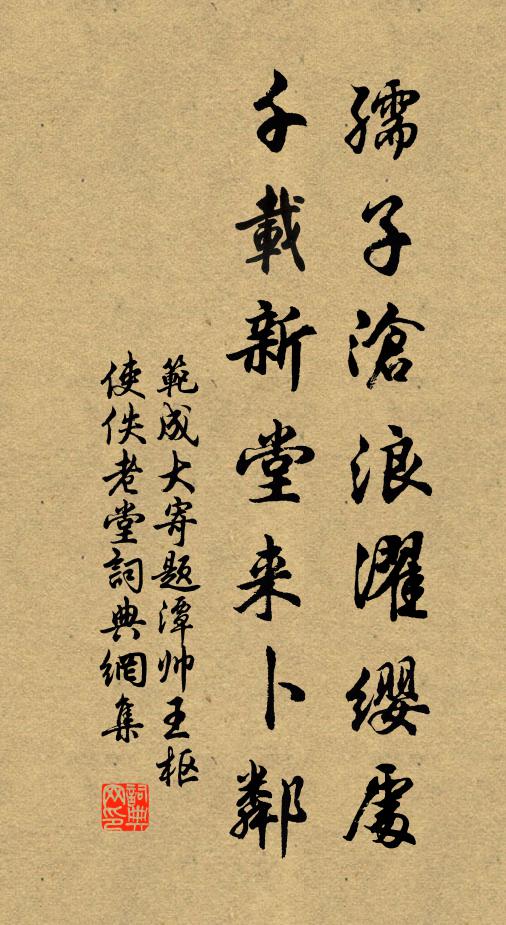 孺子滄浪濯纓處
千載新堂来卜鄰
範成大寄题潭帅王枢
使佚老堂詞典網集
詞典网印